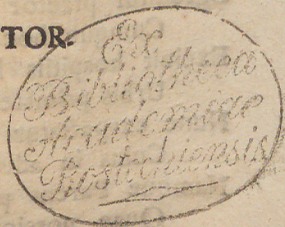 TOR.
Ex
Bibliotheca
Academiae
Rostochiensis